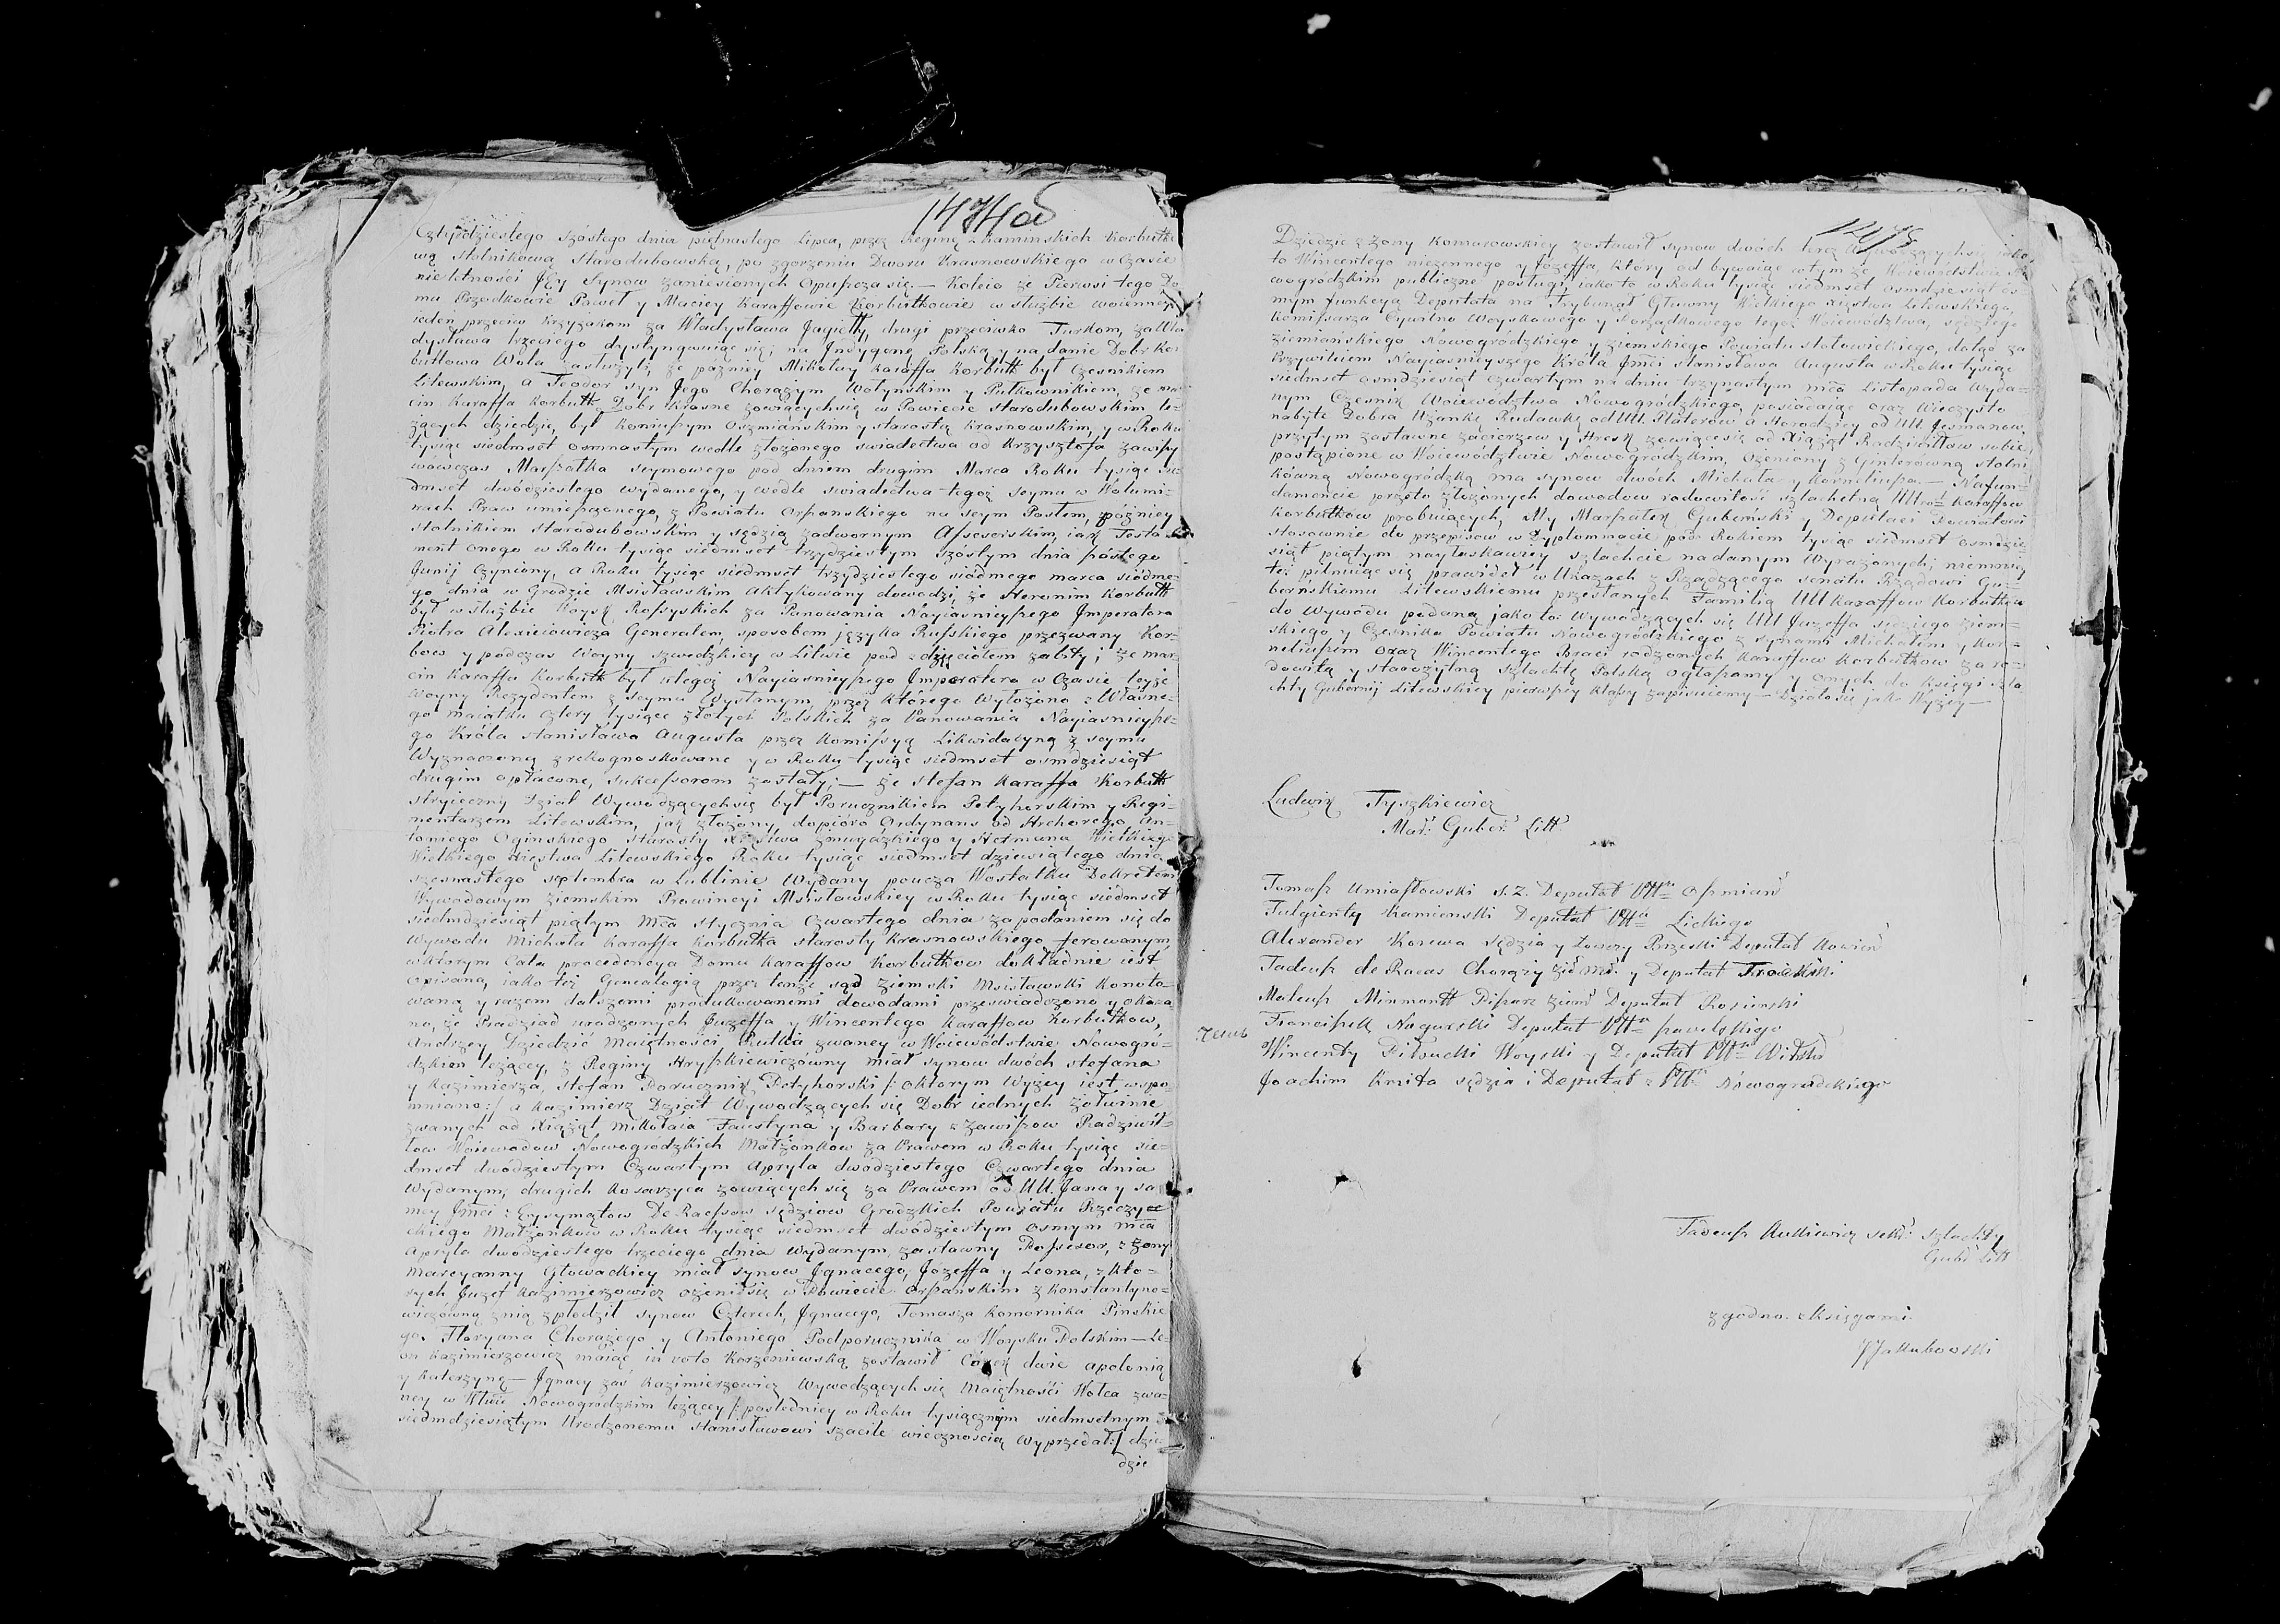 1474об
Czterdziestego szóstego dnia piętnastego Lipca, przez Reginę z Kaminskich Korbuttо
wą stolnikową Starodubowską, po zgorzeniu Dworu Krasnowskiego w czasie
nieletności Jey Synow zaniesionych opuszcza się. — Koleio że Pierwsi tego Do
mu Przodkowie Paweł y Maciey Karaffowie Korbuttkowie w służbie woienney
ieden przeciw Krzyżakom za Władysława Jagiełły, drugi przeciwko Turkom, za Wła
dysława trzeciego dystyngwuiąc się; na Indygenę Polską y nadanie Dobr Kor
buttowa Wola zasłużyli, że pozniey Mikołay Karaffa Korbutt był Czesnikiem
Litewskim, a Teodor syn Jego Chorążym Wołynskim y Pułkownikiem, że Mar
cin Karaffa Korbutt Dobr Krasne zowiących się w Powiecie Starodubowskim le-
żących dziedzic, był Koniuszym Oszmiańskim y starostą Krasnowskim, y w Roku
tysiąc siedmset osmnastym wedle złożonego swiadectwa od Krzysztofa Zawiszy
wowczas Marszałka seymowego pod dniem drugim Marca Roku tysiąc sie
dmset dwódziestego wydanego, y wedle swiadectwa tegoż seymu w Volumi-
nach Praw umieszczonego, z Powiatu Orszanskiego na seym Posłem, pozniey
stolnikiem starodubowskim y sędzią zadwornym Assesorskim, iak Testa
ment onego w Roku tysiąc siedmset trzydziestym szóstym dnia szóstego
Junij czyniony, a Roku tysiąc siedmset trzydziestego siódmego marca siódme-
go dnia w Grodzie Mscisławskim aktykowany dowodzi, że Heronim Korbutt
był w służbie Woysk Rossyiskich za Panowania Nayiasnieyszego Imperatora
Piotra Alexieiewicza Generałem, sposobem języka Ruskiego przezwany Kor-
bow y podczas Woyny szwedzkiey w Litwie pod zdzięciołem zabity; że Mar
cin Karaffa Korbutt był u tegoż Nayiasnieyszego Imperatora w czasie teyże
Woyny Rezydentem z seymu Wysłanym, przez którego wyłożono z Własne-
go maiątku cztery tysiące złotych Polskich za Panowania Nayiasnieysze-
go Króla Stanisława Augusta przez Kommissyą Likwidacyną z seymu
Wyznaczoną zrekognoskowane y w Roku tysiąc siedmset osmdziesiąt
drugim opłacone, sukcessorom zostały; — że Stefan Karaffa Korbutt
stryieczny Dziad Wywodzących się był Porucznikiem Petyhorskim y Regi-
mentarzem Litewskim, jak złożony dopióro Ordynans od Hrehorego An-
toniego Oginskiego starosty Xięstwa Zmuydzkiego y Hetmana Wielkiego
Wielkiego Xięstwa Litewskiego Roku tysiąc siedmset dziewiątego dnia
szesnastego septembra w Lublinie Wydany poucza. Wostatku Dekretem
Wywodowym ziemskim Prowincyi Mscisławskiey w Roku tysiąc siedmset
siedmdziesiąt piątym Mca stycznia czwartego dnia za podaniem się do
wywodu Michała Karaffa Korbutta starosty Krasnowskiego ferowanym
w ktorym Cała procedencya Domu Karaffow Korbuttow dokładnie iest
opisana, iako też Genealogią przez tenże sąd ziemski Mscisławski konoto-
waną y razem dalszemi produkowanemi dowodami przeswiadczono y okaza
no, że Pradziad urodzonych Juzeffa y Wincentego Karaffow Korbuttkow,
Andrzey Dziedzic Maiętności Rutka zwaney w Woiewództwie Nowogro-
dzkiem leżącey, z Reginy Hryszkiewiczówny miał synow dwóch stefana
y Kazimierza, stefan Porucznik Petyhorski /: o ktorym wyzey iest wspo-
mniano :/ a Kazimierz Dziad Wywodzących się Dobr iednych żołwinie
zwanych od Xiążąt Mikołaia Faustyna y Barbary z Zawiszow Radziwił-
łow Woiewodow Nowogródzkich Małżonkow za Prawem w Roku tysiąc sie-
dmset dwódziestym Czwartym Apryla dwodziestego Czwartego dnia
wydanym, drugich Kosarzyca zowiących się za Prawem od UU. Jana y sa
mey Jmci z Erysymątow De Raessow sędziow Grodzkich Powiatu Rzeczyc
ckiego Małżonkow w Roku tysiąc siedmset dwódziestym osmym mca
Apryla dwodziestego trzeciego dnia wydanym, zastawny Possesor, z żony
Maryanny Głowackiey miał synow Jgnacego, Józeffa y Leona, z któ-
rych Juzef Kazimierzowicz ożenił się w Powiecie Orszańskim z Konstantyno-
wiczówną z nią zpłodził synow Czterech, Jgnacego, Tomasza Komornika Pinskie
go. Floryana Chorążego y Antoniego Podporucznika w Woysku Polskim — Le-
on Kazimierzowicz maiąc in voto Korzeniewską zostawił Córek dwie Apolonią
y Katerzynę — Jgnacy zas Kazimierzowicz Wywodzących się Maiętności Hołca zwa-
ney w Wtwie Nowogródzkim leżącey /: posledniey w Roku tysiącznym siedmsetnym
siedmdziesiątym Urodzonemu stanisławowi szacile wiecznoscią wyprzedał :/ dzie-
dzic
1475
Dziedzic z żony Komarowskiey zostawił synow dwóch teraz Wywodzących się, jako
to Wincentego niezennego y Józeffa, który od bywaiąc w tymże Woiewództwie No
wogródzkim publiczne posługi, iako to w Roku tysiąc siedmset osmdziesiąt ós
mym funkcyą Deputata na Trybunał Głuwny Wielkiego xięstwa Litewskiego,
Komissarza Cywilno Woyskowego y Porządkowego tegoż Woiewództwa, sędziego
ziemiańskiego Nowogródzkiego y ziemskiego Powiatu stołowickiego, dotąd za
Przywileiem Nayiasnieyszego Króla Jmci stanisława Augusta w Roku tysiąc
siedmset osmdziesiąt czwartym na dniu trzynastym mca Listopada Wyda-
nym Czesnik Woiewództwa Nowogródzkiego, posiadaiąc oraz Wieczysto
nabyte Dobra Użankę Rudawkę od UU. Platerów a Horodziey od UU. Jesmanow,
przytym zastawne zacierzew y Hresk zowiące się od Xiąząt Radziwiłłow sobie
postąpione w Woiewództwie Nowogródzkim, Ożeniony z Ginterówną stolni
kówną Nowogródzką ma synow dwóch Michała y Korneliusza. — Na fun-
damencie przeto złożonych dowodow rodowitość szlachetną Karaffow
Korbuttkow probuiących, My Marszałek Guberński y Deputaci Powiatowi
stosownie do przepisow w Dyplommacie pod Rokiem tysiąc siedmset osmdzie-
siąt piątym nayłaskawiey szlachcie nadanym Wyrażonych, niemniey
też pilnuiąc się prawideł w Ukazach z Rządzącego senatu Rządowi Gu-
berńskiemu Litewskiemu przesłanych Familią UU Karaffow Korbuttkow
do Wywodu podaną jako to: Wywodzących się UU Juzeffa sędziego ziem-
skiego y Czesnika Powiatu Nowogródzkiego z synami Michałem y Kor-
neliuszem oraz Wincentego Braci rodzonych Karaffow Korbuttkow za ro-
dowitą y starożytną szlachtę Polską ogłaszamy y onych do księgi szla
chty Gubernij Litewskiey pierwszey klassy zapisuiemy — Działo się jako Wyżey —
Ludwik Tyszkiewicz
Mar: Guber: Litt:
Tomasz Umiastowski S. Z. Deputat Pttu Oszmian
Fulgienty Kamienski Deputat Pttu Lidkiego
Alexander Kosewa sędzia y Łowczy Brzeski Deputat Kowien
Tadeusz de Raeas Chorąży y Deputat Trockski
Mateusz Minmontt Pisarz ziem Deputat Rosienski
Franciszek Nagurski Deputat Pttu szawelskiego
Wincenty Piłsudki Woyski y Deputat Pttu
Joachim Krzita sędzia i Deputat z Pttu Nowogrudzkiego
Tadeusz sekr: szlachty
Gub: Litt
zgodno z Księgami
Jakubowski